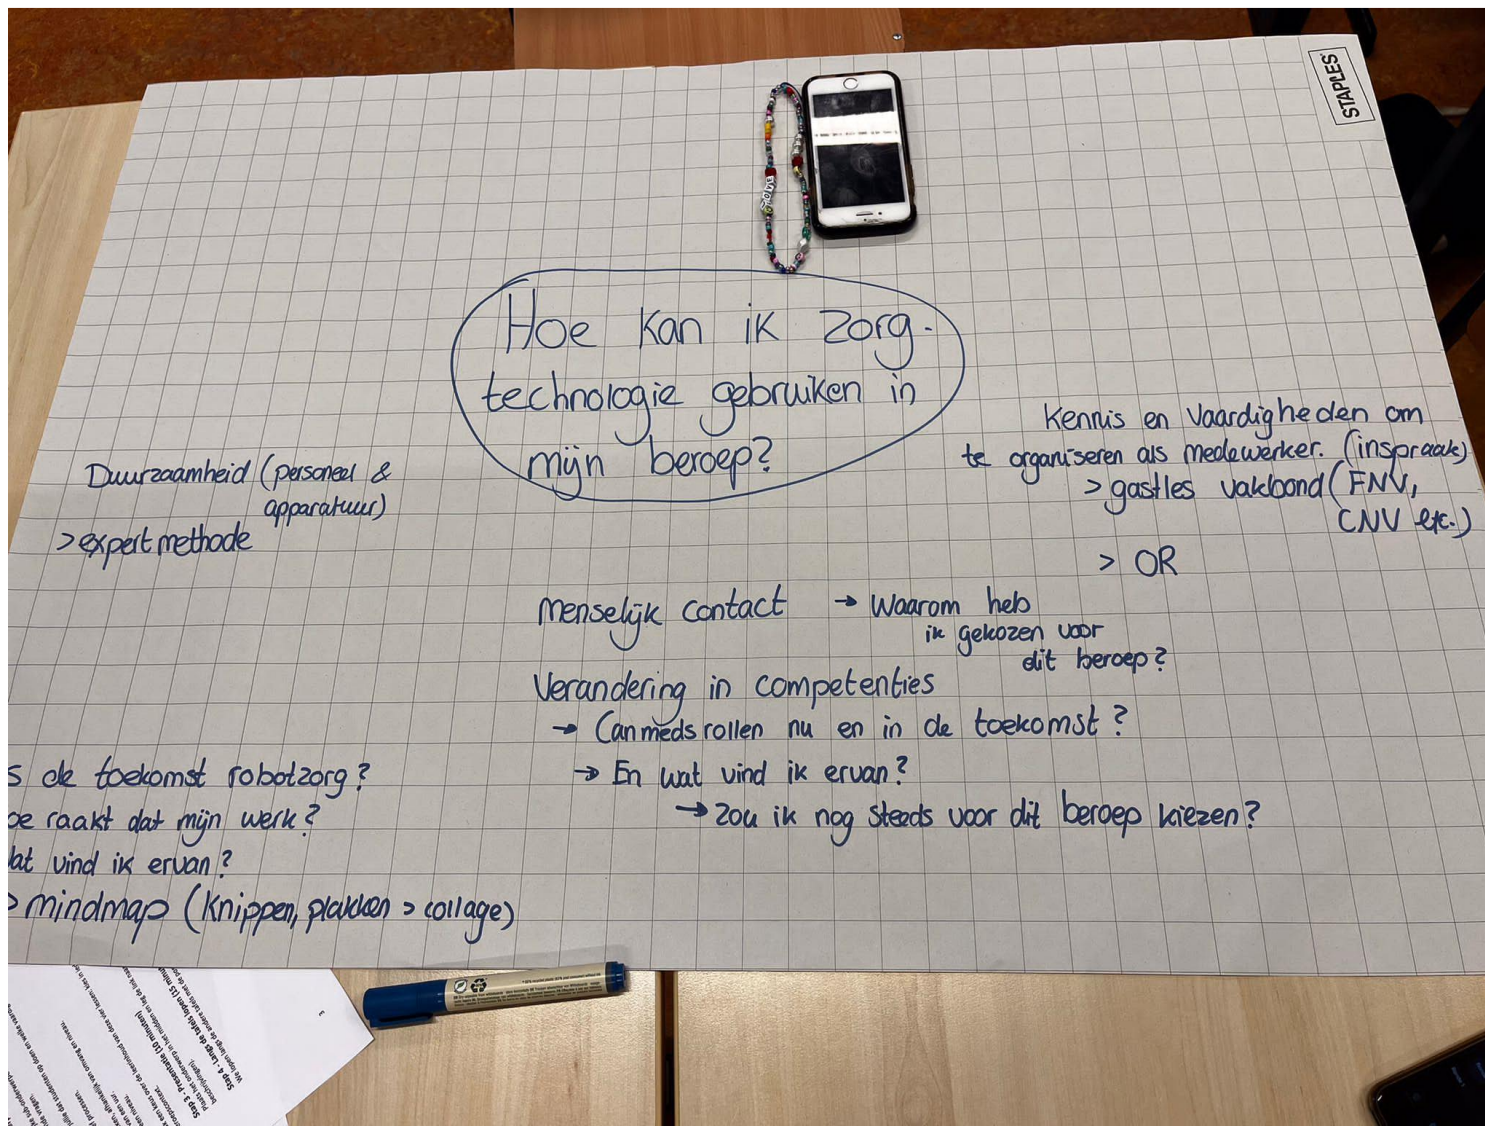 STAPLES
Hoe kan ik zorg-
technologie gebruiken in
mijn beroep?
Duurzaamheid (personeel &
apparatuur)
> expert methode
Kennis en vaardigheden om
te organiseren als medewerker. (inspraak)
> gastles vakbond (FNV,
CNV etc.)
> OR
Menselijk contact → Waarom heb
ik gekozen voor
dit beroep?
Verandering in competenties
→ Canmeds rollen nu en in de toekomst?
→ En wat vind ik ervan?
→ Zou ik nog steeds voor dit beroep kiezen?
s de toekomst robotzorg?
oe raakt dat mijn werk?
at vind ik ervan?
> mindmap (knippen, plakken > collage)
3
Stap 4 - Langs de tafels lopen (15 minu
Stap 3 - Presentatie (10 minuten)